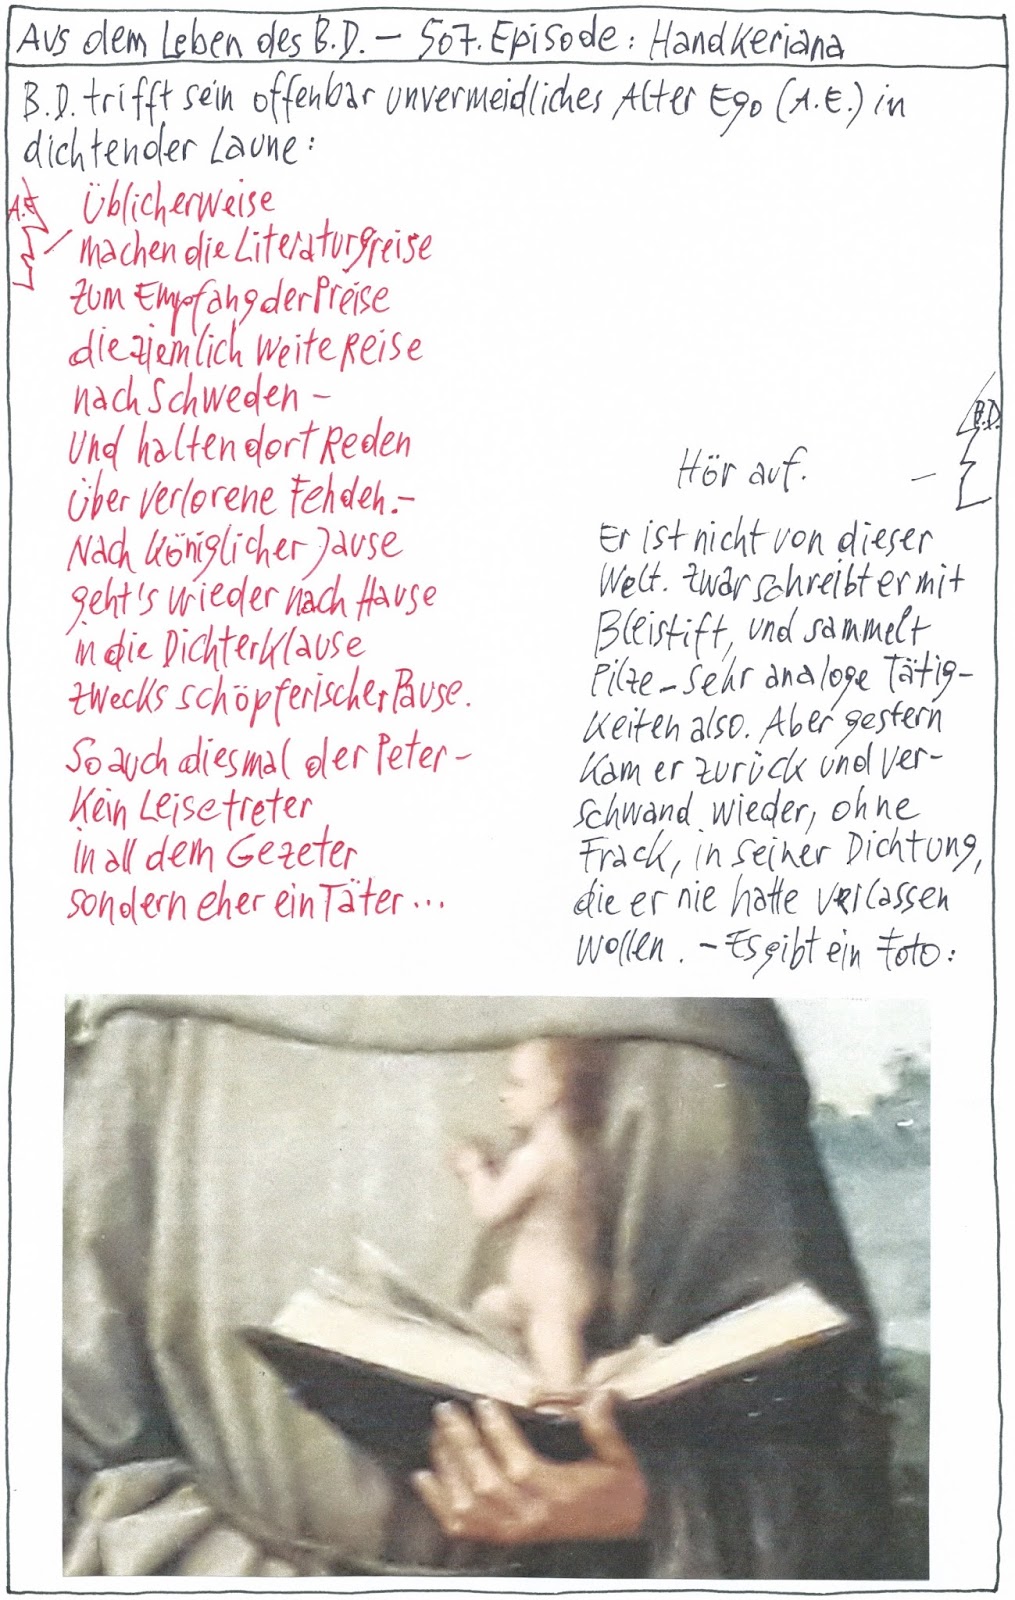 Aus dem Leben des B.D. – 507. Episode: Handkeriana
B.D. trifft sein offenbar unvermeidliches Alter Ego (A.E.) in
dichtender Laune:
A.E.
Üblicherweise
machen die Literaturgreise
zum Empfang der Preise
die ziemlich weite Reise
nach Schweden –
Und halten dort Reden
Über verlorene Fehden.–
Nach Königlicher Jause
geht's wieder nach Hause
in die Dichterklause
zwecks schöpferischer Pause.
So auch diesmal der Peter –
Kein Leisetreter
in all dem Gezeter
sondern eher ein Täter...
B.D.
Hör auf. –
Er ist nicht von dieser
Welt. Zwar schreibt er mit
Bleistift, und sammelt
Pilze – sehr analoge Tätig-
keiten also. Aber gestern
kam er zurück und ver-
schwand wieder, ohne
Frack, in seiner Dichtung,
die er nie hatte verlassen
wollen. – Es gibt ein Foto: